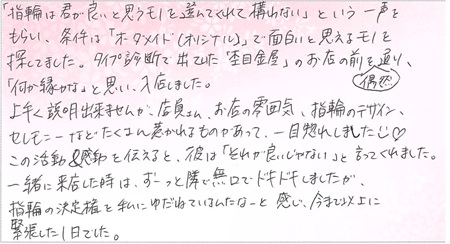 「指輪は君が良いと思うモノを選んでくれて構わない」という一声を
もらい、条件は「オーダメイド(オリジナル)」で面白いと思えるモノを
探してました。タイプ診断で出てた「杢目金屋」のお店の前を通り、
偶然
「何か縁かな」と思い、入店しました。
上手く説明出来ませんが、店員さん、お店の雰囲気、指輪のデザイン、
セレモニーなどたくさん惹かれるものがあって、一目惚れしました♡
この活動&感動を伝えると、彼は「それが良いじゃない」と言ってくれました。
一緒に来店した時は、ずーっと隣で無口でドキドキしましたが、
指輪の決定権を私にゆだねているんだなーと感じ、今まで以上に
緊張した1日でした。